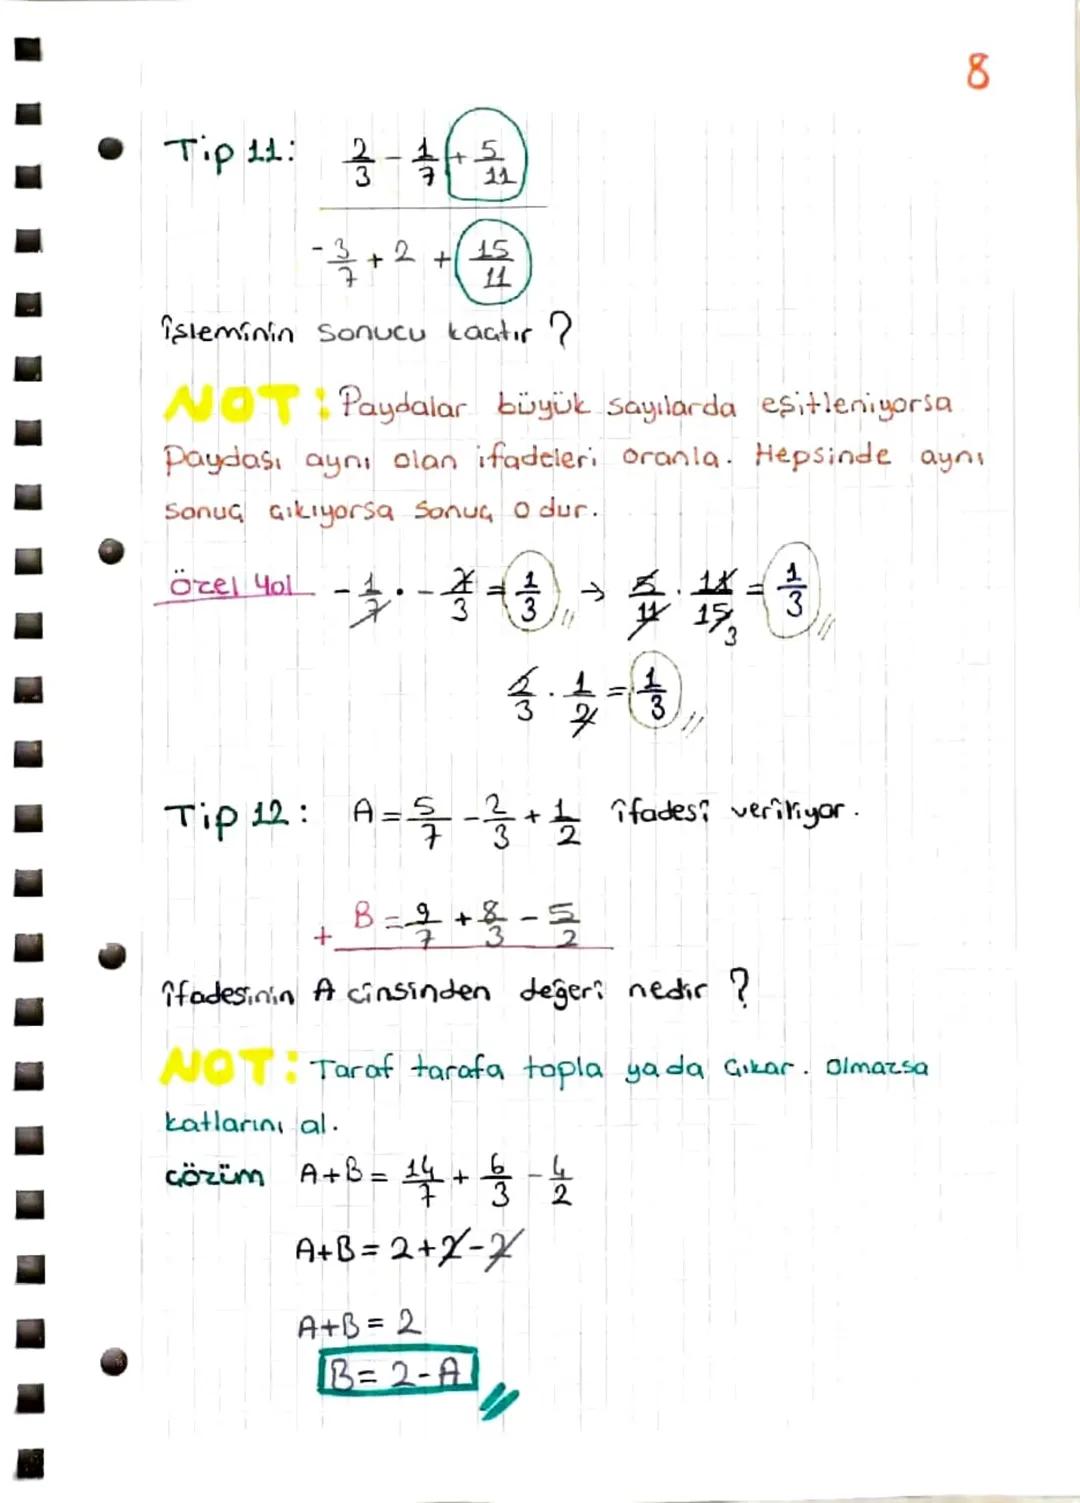 8
Tip 11: 2/3 - 1/7 + 5/11
-3/7 + 2 + 15/11
işleminin sonucu kaçtır ?
NOT: Paydalar büyük sayılarda eşitleniyorsa
paydası aynı olan ifadeleri oranla. Hepsinde aynı
sonuç çıkıyorsa sonuç o dur.
Özel Yol -1/7 . -7/3 = 1/3 → 5/11 . 11/15 3 = 1/3
2/3 . 1/2 = 1/3
Tip 12: A = 5/7 - 2/3 + 1/2 ifadesi veriliyor.
+ B = 9/7 + 8/3 - 5/2
ifadesinin A cinsinden değeri nedir ?
NOT: Taraf tarafa topla yada çıkar. Olmazsa
katlarını al.
çözüm A+B = 14/7 + 6/3 - 4/2
A+B = 2+2-2
A+B = 2
B = 2-A